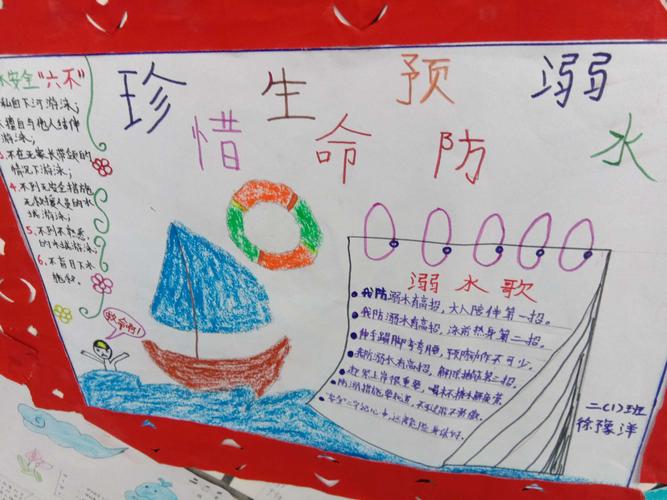 珍惜生命预防溺水
水安全"六不"
私自下河游泳;
擅自与他人结伴
游泳;
不在无家长带领的
情况下游泳;
4.不到无安全措施
无救援人员的水
域游泳;
5.不到不熟悉
的水域游泳;
6.不盲目下水
施救。
救命啊!
溺水歌
我防溺水有高招,大人陪伴第一招。
我防溺水有高招,泳前热身第二招。
伸手踢脚弯弯腰,预防动作不可少。
我防溺水有高招,解除抽筋第三招。
二(1)班
徐豫洋